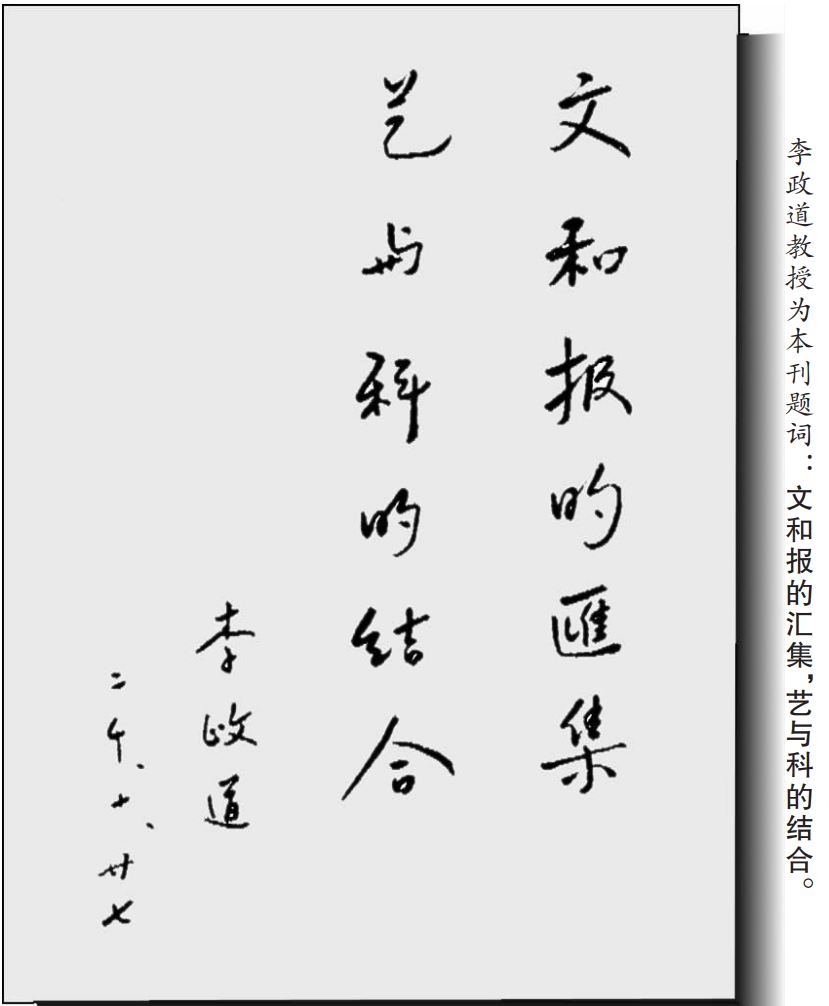 李政道教授为本刊题词：文和报的汇集，艺与科的结合。
文和报的匯集
艺与科的结合
李政道
二千、十、廿七